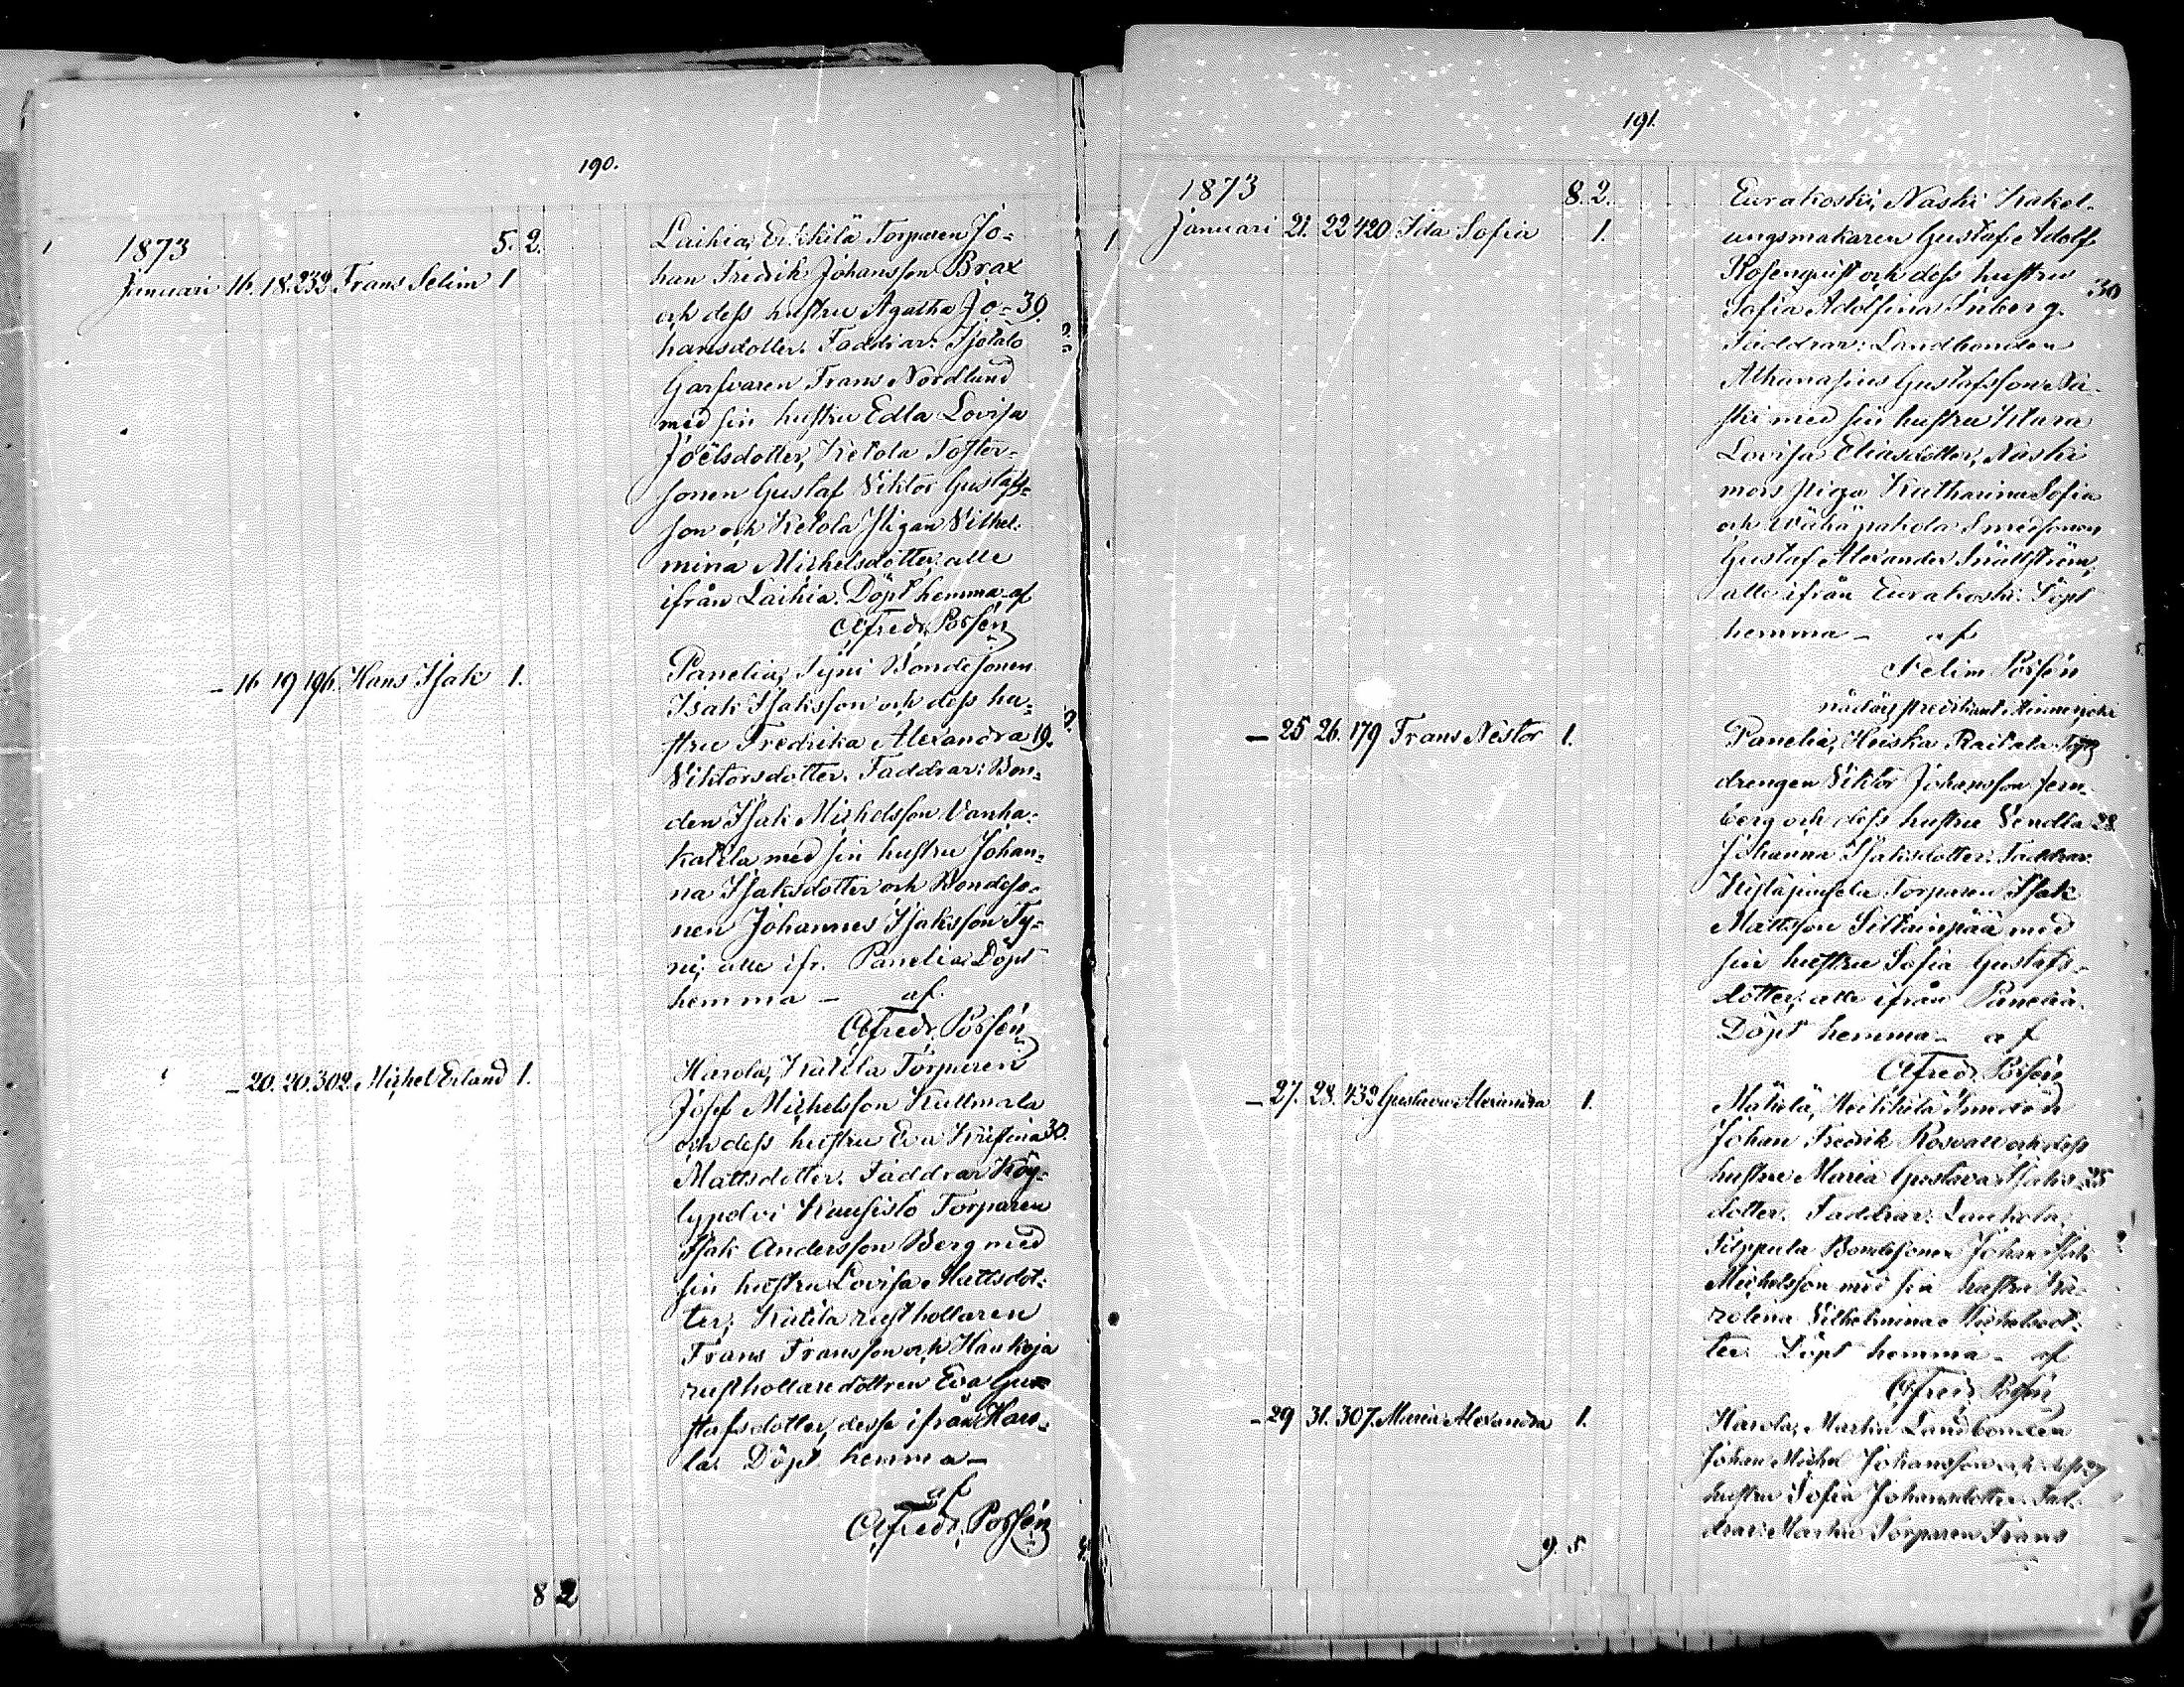 190.
1873 5. 2.
Januari 16. 18. 232 Frans Selim 1
Laihia, Erkkilä Torparen Jo-
han Fredrik Johansson Brax
och dess hustru Agatha Jo- 39.
hansdotter. Faddrar:
Garfvaren Frans Nordlund
med sin hustru Edla Lovisa
Joëlsdotter, Ketola Foster-
sonen Gustaf Viktor Gustafs-
son och Ketola Pigan Vilhel-
mina Michelsdotter, alle
ifrån Laihia. Döpt hemma af
Alfred Posſén
- 16 19 196. Hans Isak 1.
Panelia, Tyni Bondesonen
Isak Isaksson och dess hu-
stru Fredrika Alexandra 19.
Viktorsdotter. Faddrar: Bon-
den Isak Michelsson Vanha-
katila med sin hustru Johan-
na Isaksdotter och Bondeso-
nen Johannes Isaksson Ty-
ni, alle ifr. Panelia. Döpt
hemma - af
Alfred Posſén
- 20. 20. 302. Michel Erland 1.
Harola, Katila Torparen
Josef Michelsson Kullmala
och dess hustru Eva Kristina 30.
Mattsdotter. Faddrar Köy-
lypolvi Torparen
Isak Andersson Berg med
sin hustru Lovisa Mattsdot-
ter, Katila rusthollaren
Frans Fransson och Haukoja
rusthollaredottren Eva Gu-
stafsdotter, desse ifrån Haro-
la. Döpt hemma -
af
Alfred Posſén
8 2
191.
1873 8. 2.
Januari 21. 22 420 Ida Sofia 1.
Eurakoski, Naski Kakel-
ungsmakaren Gustaf Adolf
Rosenqvist och dess hustru
Sofia Adolfina 30
Faddrar: Landbonden
Athanasius Gustafsson Na-
ski med sin hustru Klara
Lovisa Eliasdotter, Naski
mors piga Katharina Sofia
och Smedsonen
Gustaf Alexander Snällström,
alle ifrån Eurakoski. Döpt
hemma - af
Selim Posſén
nådårs predikant
- 25 26. 179 Frans Nestor 1.
Panelia, Heiska Raitala
drengen Viktor Johansson Jern-
berg och dess hustru Vendla 28.
Johanna Isaksdotter. Faddrar:
Torparen Isak
Mattsson Siltainpää med
sin hustru Sofia Gustafs-
dotter, alle ifrån Panelia.
Döpt hemma - af
Alfred Posſén
- 27. 28. 432 Gustava Alexandra 1.
Mäkelä, Heikkilä Smeden
Johan Fredrik Rosvall och dess
hustru Maria Gustava Isaks- 25
dotter. Faddrar: Laukola,
Sileppula Bondesonen Johan Isak
Michelsson med sin hustru Ka-
rolina Vilhelmina Michelsdot-
ter. Döpt hemma - af
Alfred Posſén
- 29 31. 307. Maria Alexandra 1.
Harola, Martin Landbonden
Johan Michel Johansson och dess 27
hustru Sofia Johansdotter. Fad-
drar: Martin Torparen Frans
9. 5